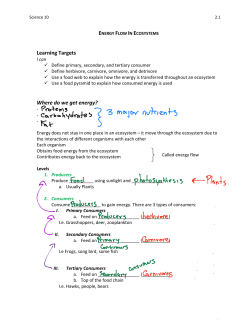 Science 10 2.1
ENERGY FLOW IN ECOSYSTEMS
Learning Targets
I can
✓ Define primary, secondary, and tertiary consumer
✓ Define herbivore, carnivore, omnivore, and detrivore
✓ Use a food web to explain how the energy is transferred throughout an ecosystem
✓ Use a food pyramid to explain how consumed energy is used
Where do we get energy?
- Proteins
- Carbohydrates } 3 major nutrients
- Fat
Energy does not stay in one place in an ecosystem – it moves through the ecosystem due to
the interactions of different organisms with each other
Each organism
Obtains food energy from the ecosystem
Contributes energy back to the ecosystem } Called energy flow
Levels
1. Producers
Produce Food using sunlight and photosynthesis ← Plants
a. Usually Plants
2. Consumers
Consume Producers to gain energy. There are 3 types of consumers:
I. Primary Consumers
a. Feed on Producers (herbivores)
i.e. Grasshoppers, deer, zooplankton
II. Secondary Consumers
a. Feed on Primary consumers (Carnivores)
i.e Frogs, song bird, some fish
III. Tertiary Consumers
a. Feed on Secondary consumers (Carnivores)
b. Top of the food chain
i.e. Hawks, people, bears